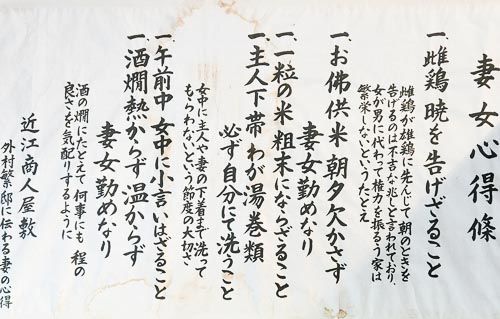 妻女心得條
一、雌鶏暁を告げざること
雌鶏が雄鶏に先んじて朝のときを
告げるのは不吉な兆しと言われており、
女が男に代わって権力を振るう家は
繁栄しないというたとえ
一、お佛供米朝夕欠かさず
妻女勤めなり
一、一粒の米粗末にならざること
一、主人下帯わが湯巻類
必ず自分にて洗うこと
女中に主人や妻の下着まで洗って
もらわないという節度の大切さ
一、午前中女中に小言いはざること
妻女勤めなり
一、酒燗熱からず温からず
酒の燗にたとえて何事にも程の
良さを気配りするように
近江商人屋敷
外村繁邸に伝わる妻の心得